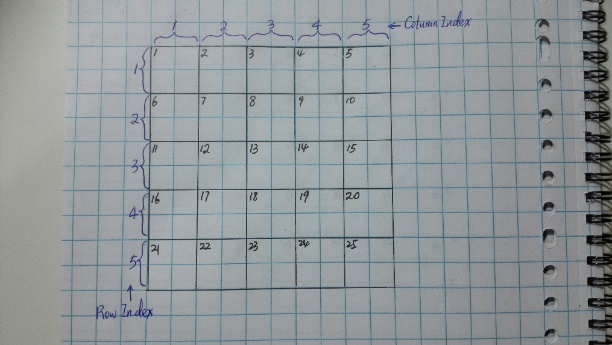 1 2 3 4 5 ← Column Index
1 1 2 3 4 5
2 6 7 8 9 10
3 11 12 13 14 15
4 16 17 18 19 20
5 21 22 23 24 25
Row Index